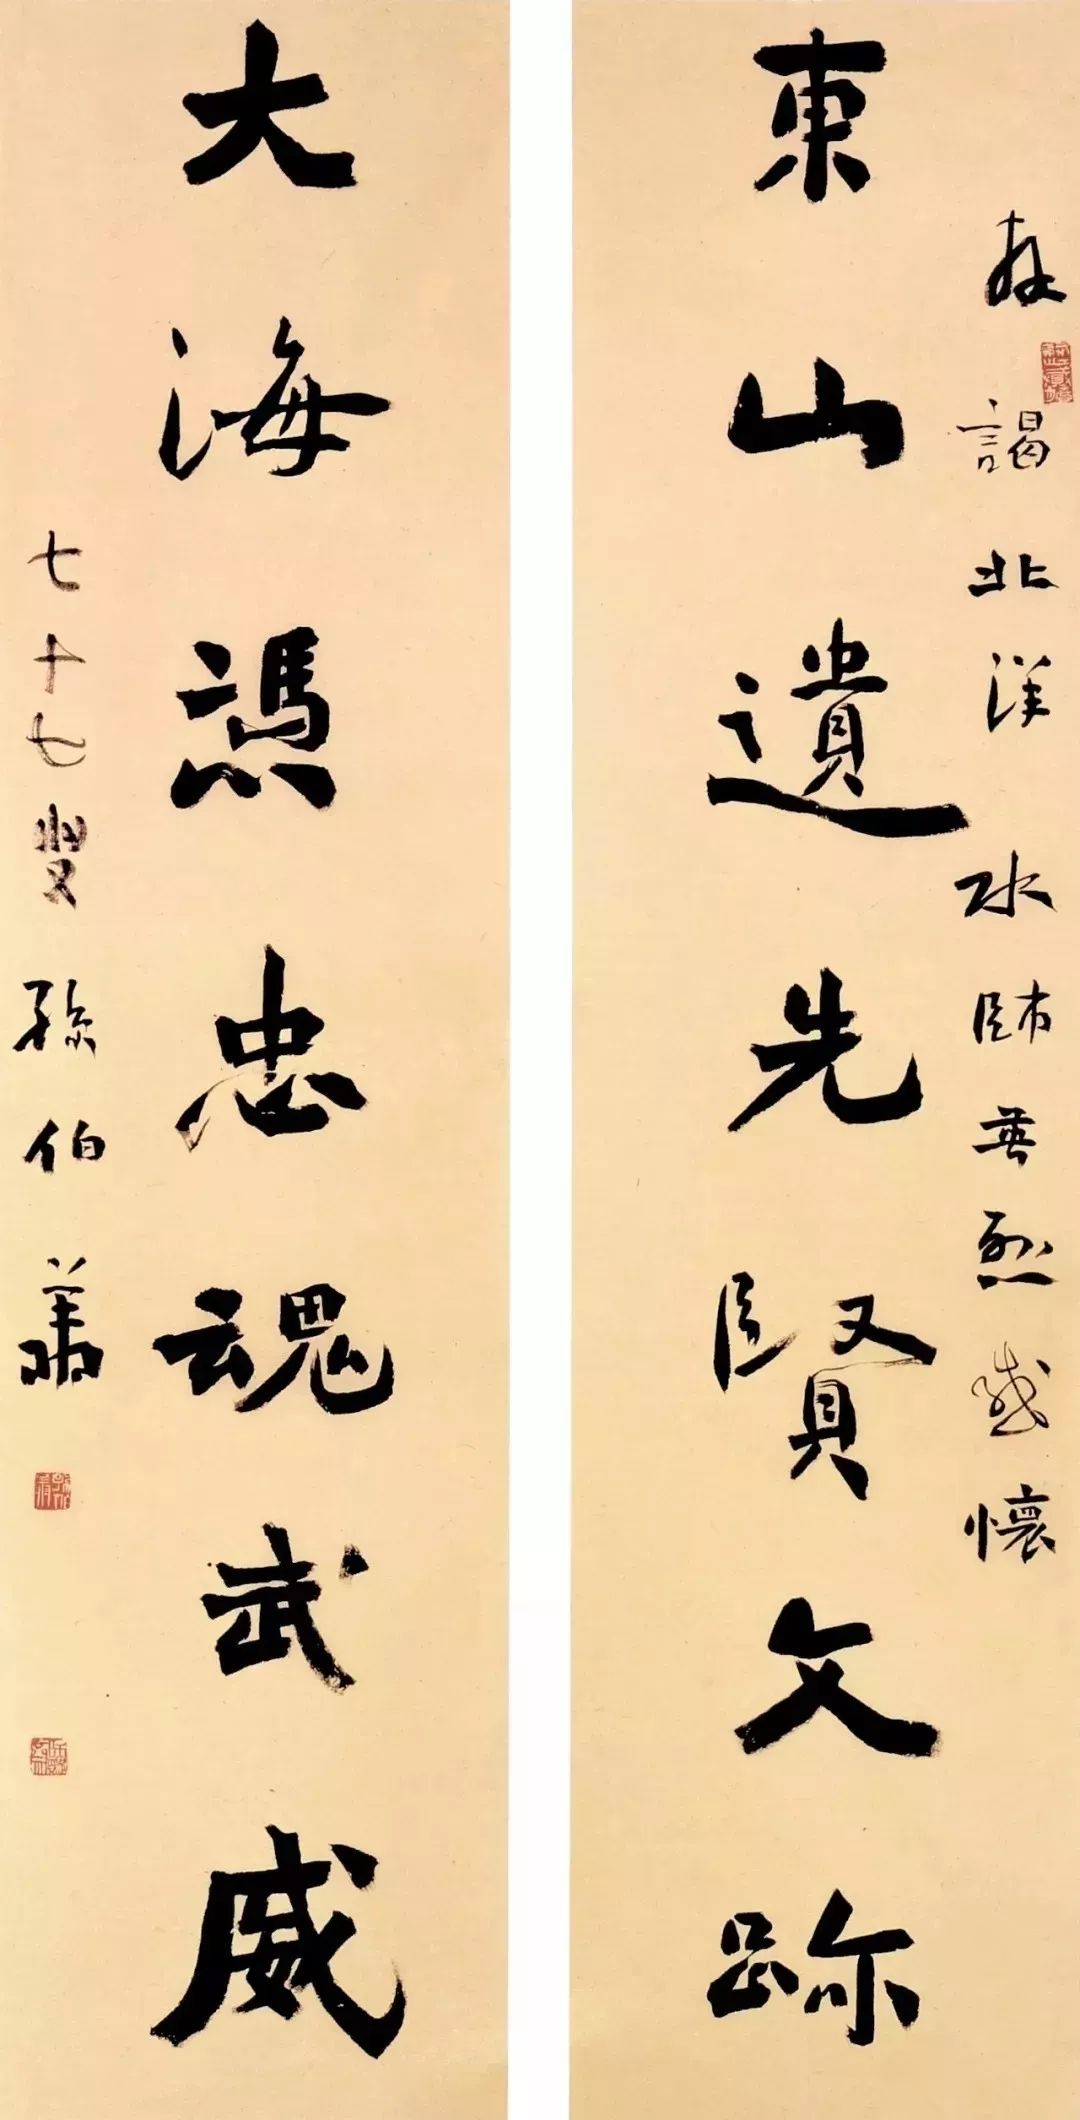 拜謁北洋水師英烈感懷
東山遺先賢文跡
大海憑忠魂武威
七十七叟孫伯翔